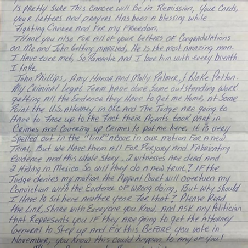 is pretty sure this cancer will be in Remission, your cards,
your letters and prayers has been a blessing while
Fighting Cancer and For my Freedom.
Thank you also For all of your letters of Congratulations
on Me and John getting married. He is the most amazing man
I have ever met, So Romantic And I love him with every breath
I take.
John Phillips, Amy Hanna and Molly Palmer, & Blake Patton
My Criminal legal Team have done some outstanding work
getting all the evidence they have to get me home at some
point the US attorney in OK And The Judge are going to
have to Face up to the Fact their Agents took part in
Crimes and covering up Crimes to Frame me. it is very
spelled out in the
that. But we have them all For Perjury and Fabricating
Evidence and this whole story. 2 witnesses are dead and
is hiding in Mexico So will they do a new trial? IF the
Judge denies my motion the Appeal Court will overturn my
Conviction with the Evidence of wrong doing, But why should
I Have to Sit here another year For that? Please Read
the Link, Share with Everyone you know. And ask any Politician
that Represents you if they are going to get the Attorney
General to Step up and Fix this Before you vote in
November, you know this could happen to any of you!